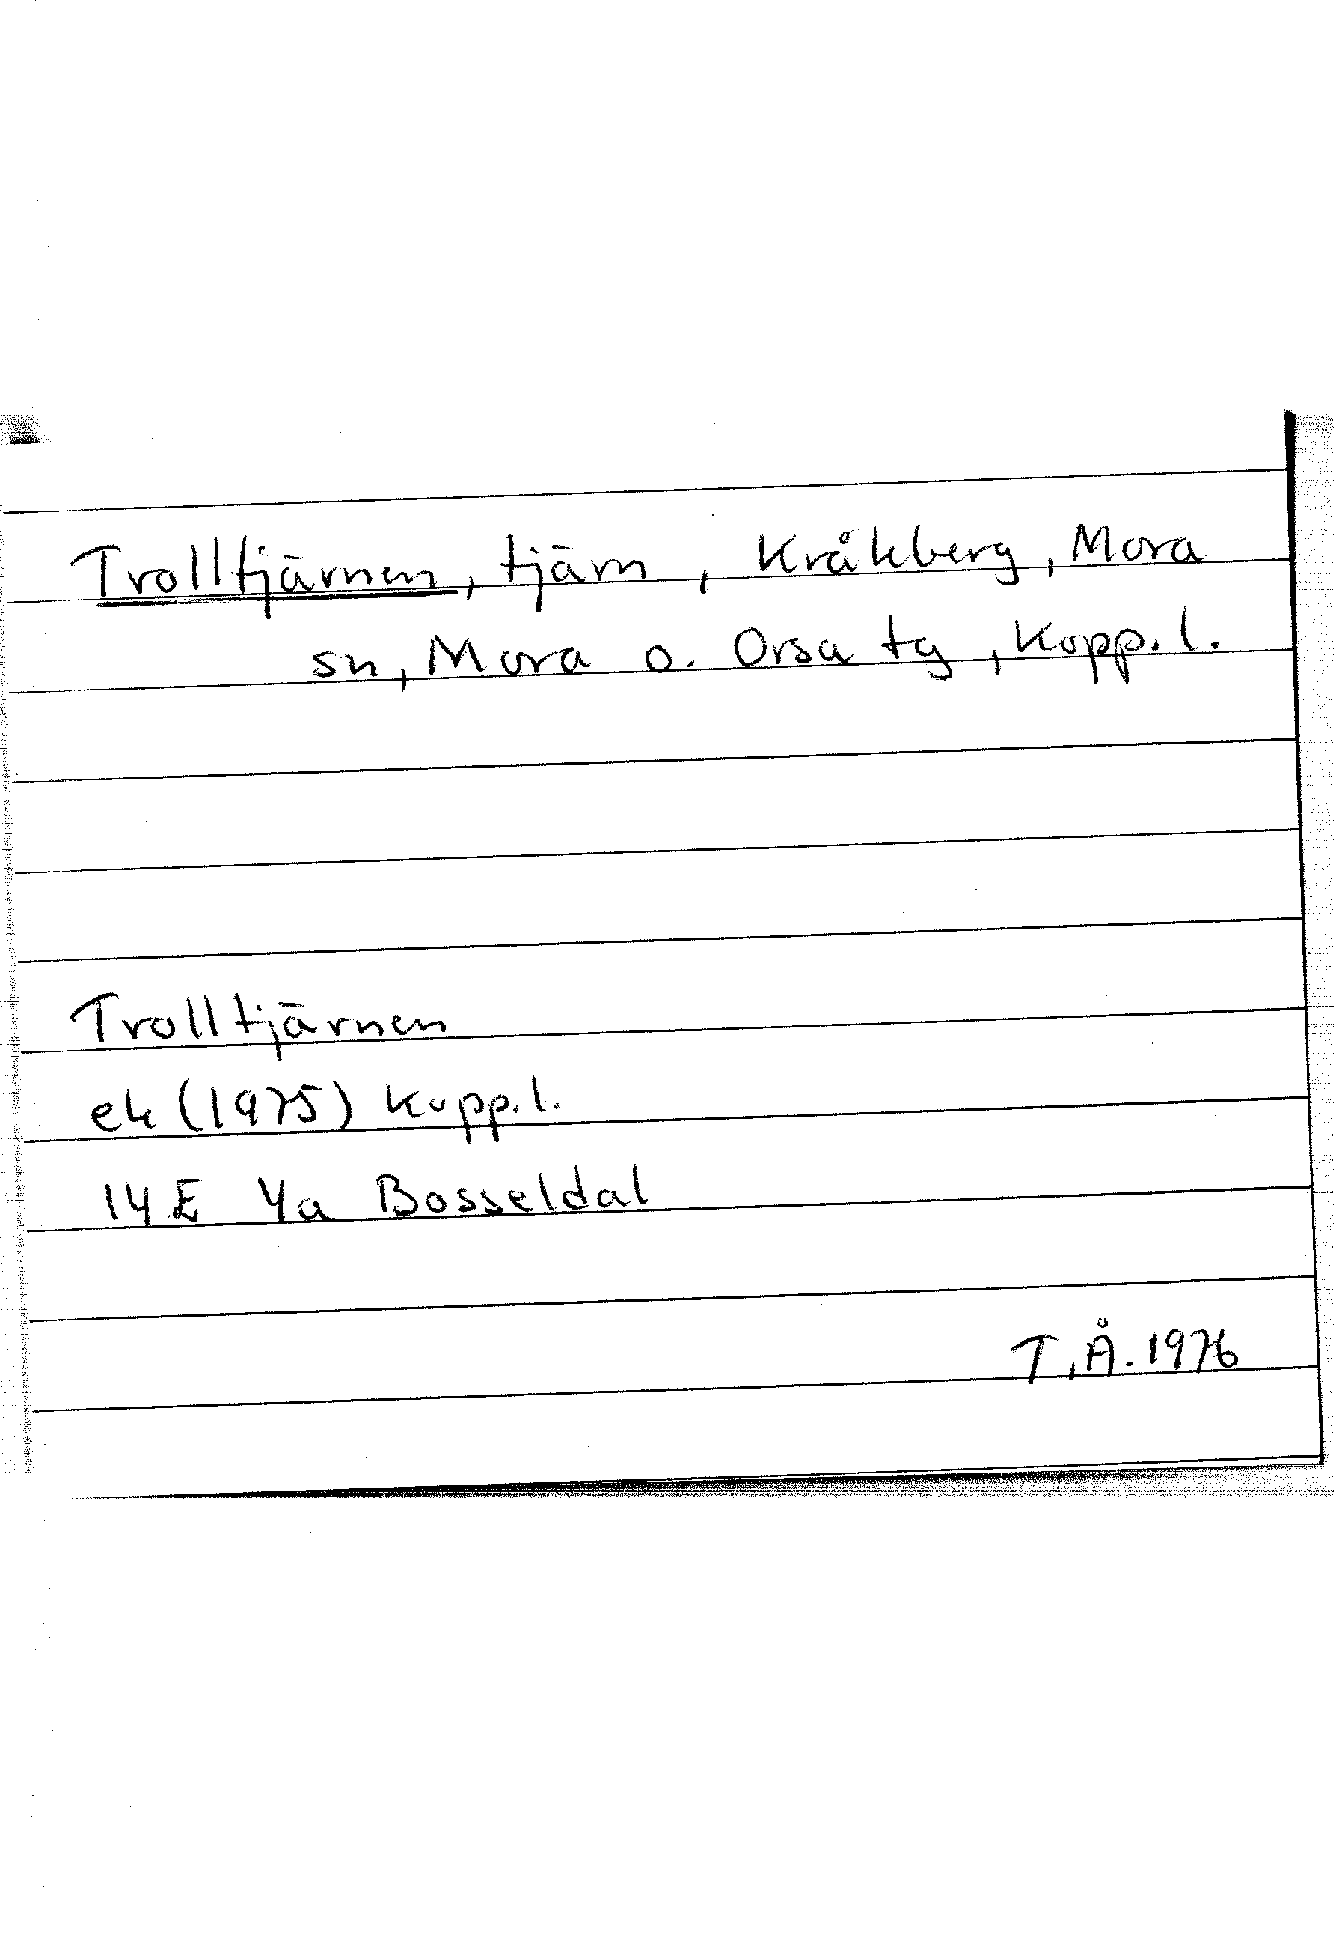 Trolltjärnen, tjärn, Kråkberg, Mora
sn, Mora o. Orsa tg, Kopp.l.
Trolltjärnen
ek (1975) Kopp.l.
14E 4a Bosseldal
T.Å. 1976